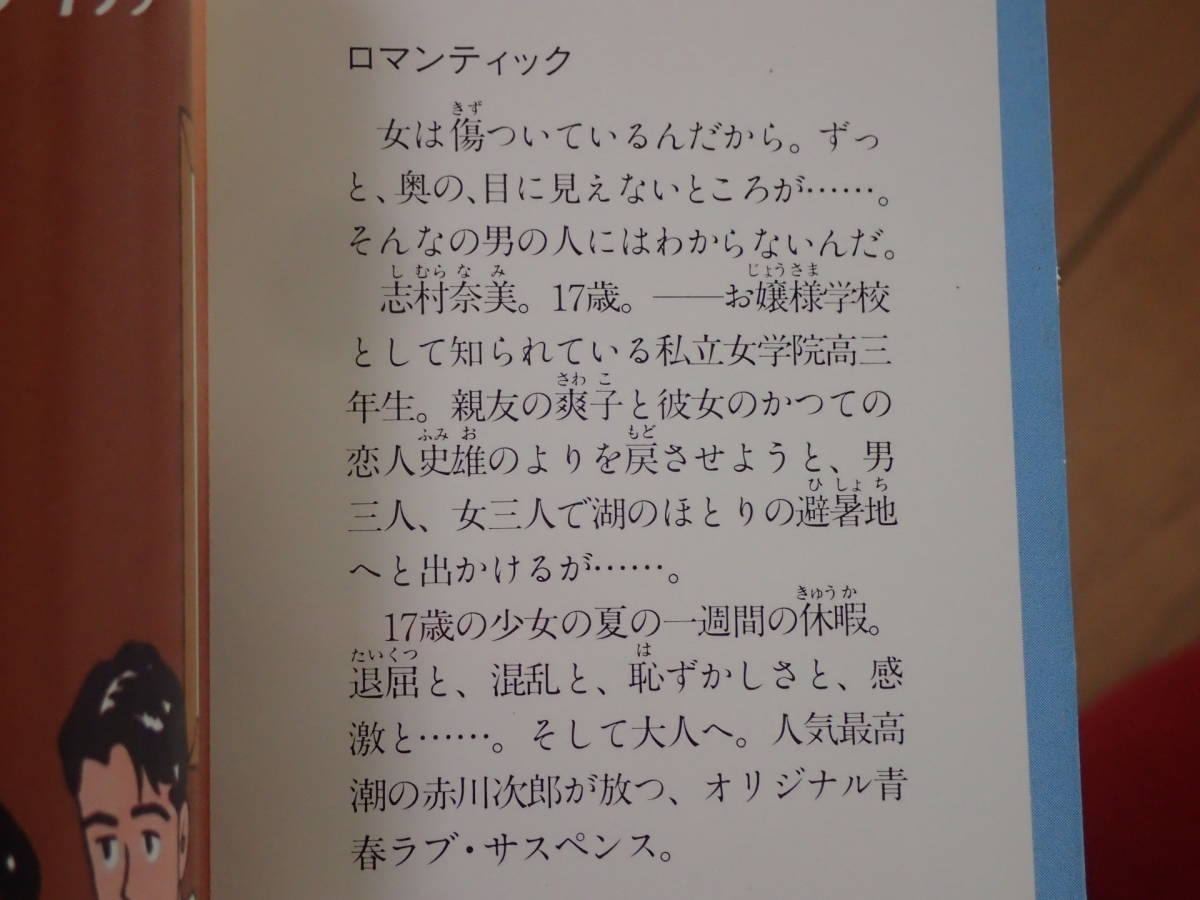 ロマンティック
女は傷ついているんだから。ずっ
と、奥の、目に見えないところが……。
そんなの男の人にはわからないんだ。
志村奈美。17歳。――お嬢様学校
として知られている私立女学院高三
年生。親友の爽子と彼女のかつての
恋人史雄のよりを戻させようと、男
三人、女三人で湖のほとりの避暑地
へと出かけるが……。
17歳の少女の夏の一週間の休暇。
退屈と、混乱と、恥ずかしさと、感
激と……。そして大人へ。人気最高
潮の赤川次郎が放つ、オリジナル青
春ラブ・サスペンス。